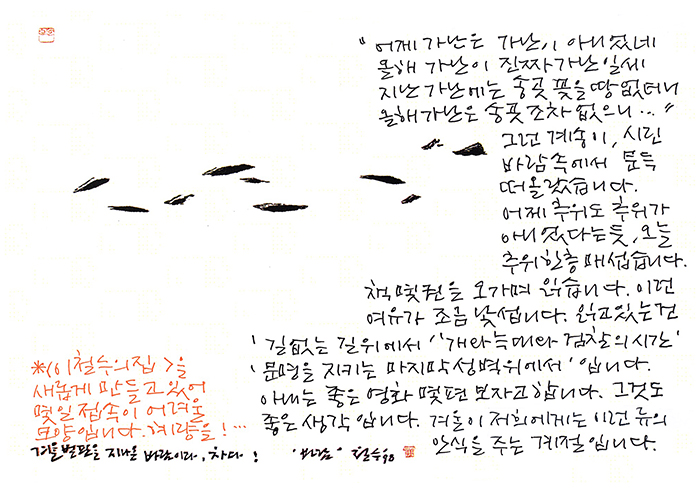 "어제 가난은 가난이 아니었네
올해 가난이 진짜 가난일세
지난 가난에는 송곳 꽂을 땅 없더니
올해 가난은 송곳조차 없으니…"
그런 계송이, 시린
바람 속에서 문득
떠올랐습니다.
어제 추위도 추위가
아니었다는듯, 오늘
추위 한층 매섭습니다.
책 몇권을 오가며 읽습니다. 이런
여유가 조금 낯섭니다. 읽고있는건
'길없는 길위에서' '개와 늑대와 검찰의 시간'
'문명을 지키는 마지막 성벽위에서' 입니다.
아내는 좋은 영화 몇편 보자고 합니다. 그것도
좋은 생각입니다. 겨울이 저희에게는 이런 류의
안식을 주는 계절입니다.
*<이철수의집>을
새롭게 만들고 있어
몇일 접속이 어려울
모양입니다. 혜량을!…
겨울 벌판을 지나온 바람이라, 차다!
"바람" 철수98